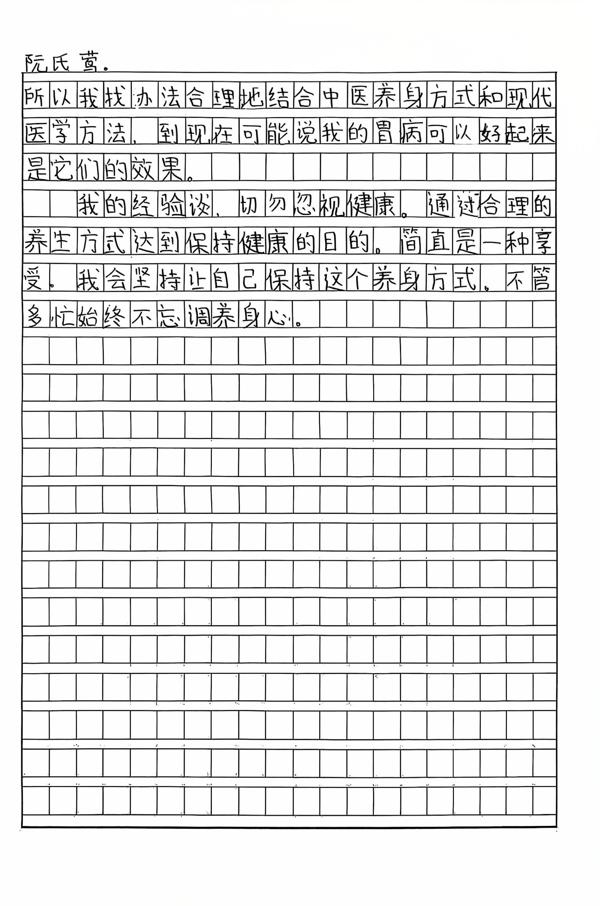 阮氏莺.
所以我找办法合理地结合中医养身方式和现代
医学方法，到现在可能说我的胃病可以好起来
是它们的效果。
我的经验谈，切勿忽视健康。通过合理的
养生方式达到保持健康的目的。简直是一种享
受。我会坚持让自己保持这个养身方式。不管
多忙始终不忘调养身心。